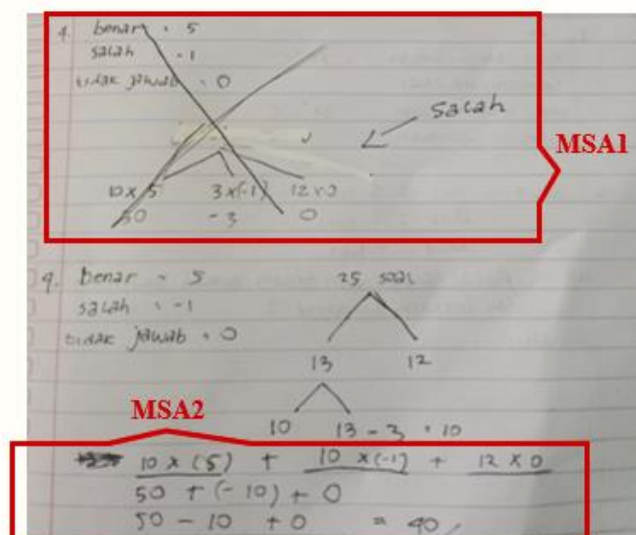 4. benar = 5
salah -1
tidak jawab = 0
salah
MSA1
10 x 5 3 x(-1) 12 x 0
50 -3 0
4. benar = 5 25 soal
salah = -1
tidak jawab = 0
13 12
MSA2
10 13 - 3 = 10
10 x (5) + 10 x (-1) + 12 x 0
50 + (-10) + 0
50 - 10 + 0 = 40